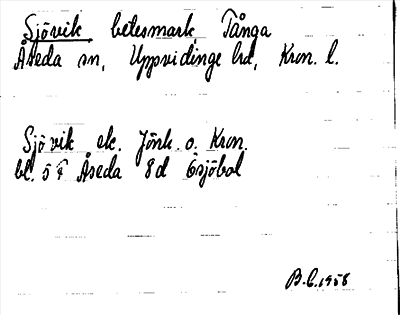 Sjövik betesmark Tånga
Åseda sn, Uppvidinge hd, Kron. l.
Sjövik ek. Jönk. o. Kron.
bl. 5 F Åseda 8d Ösjöbol
B.L. 1958